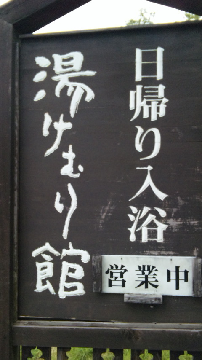 日帰り入浴
湯けむり館
営業中